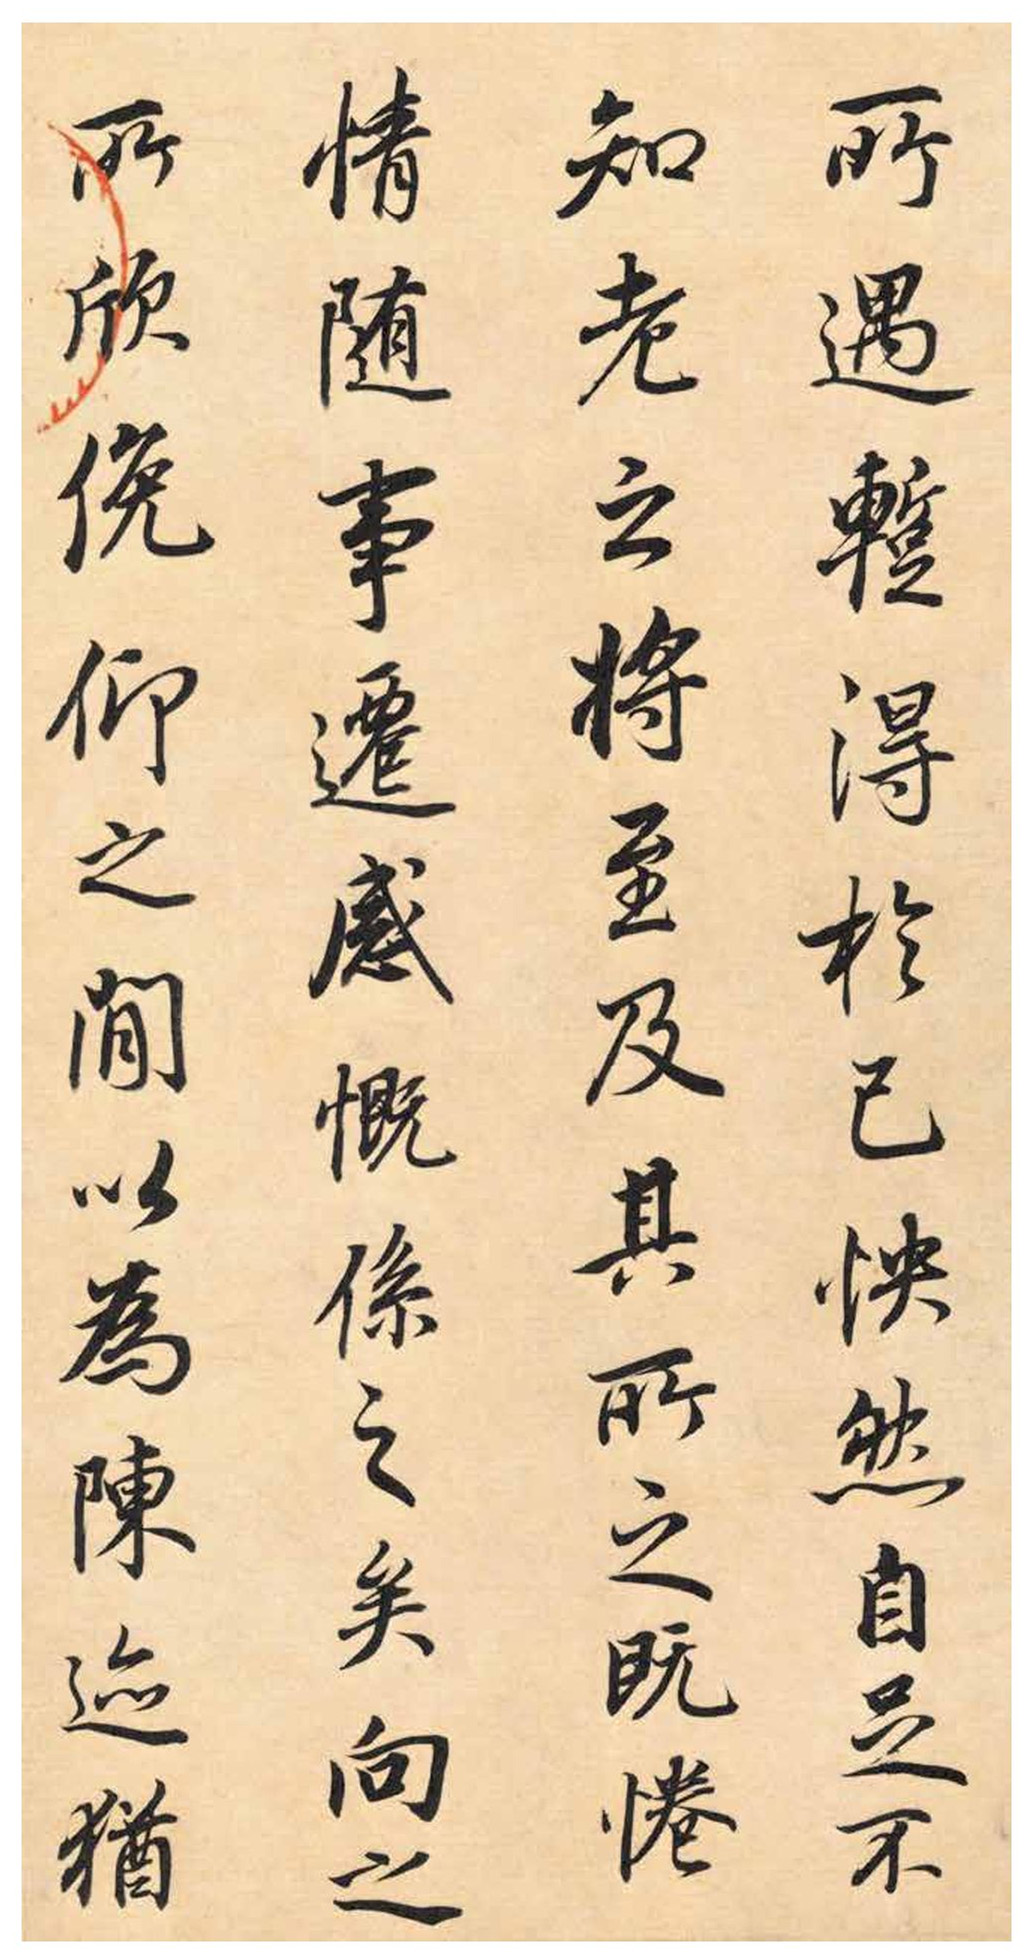 所遇暫得於己怏然自足不
知老之將至及其所之既惓
情随事遷感慨係之矣向之
所欣俛仰之閒以為陳迹猶